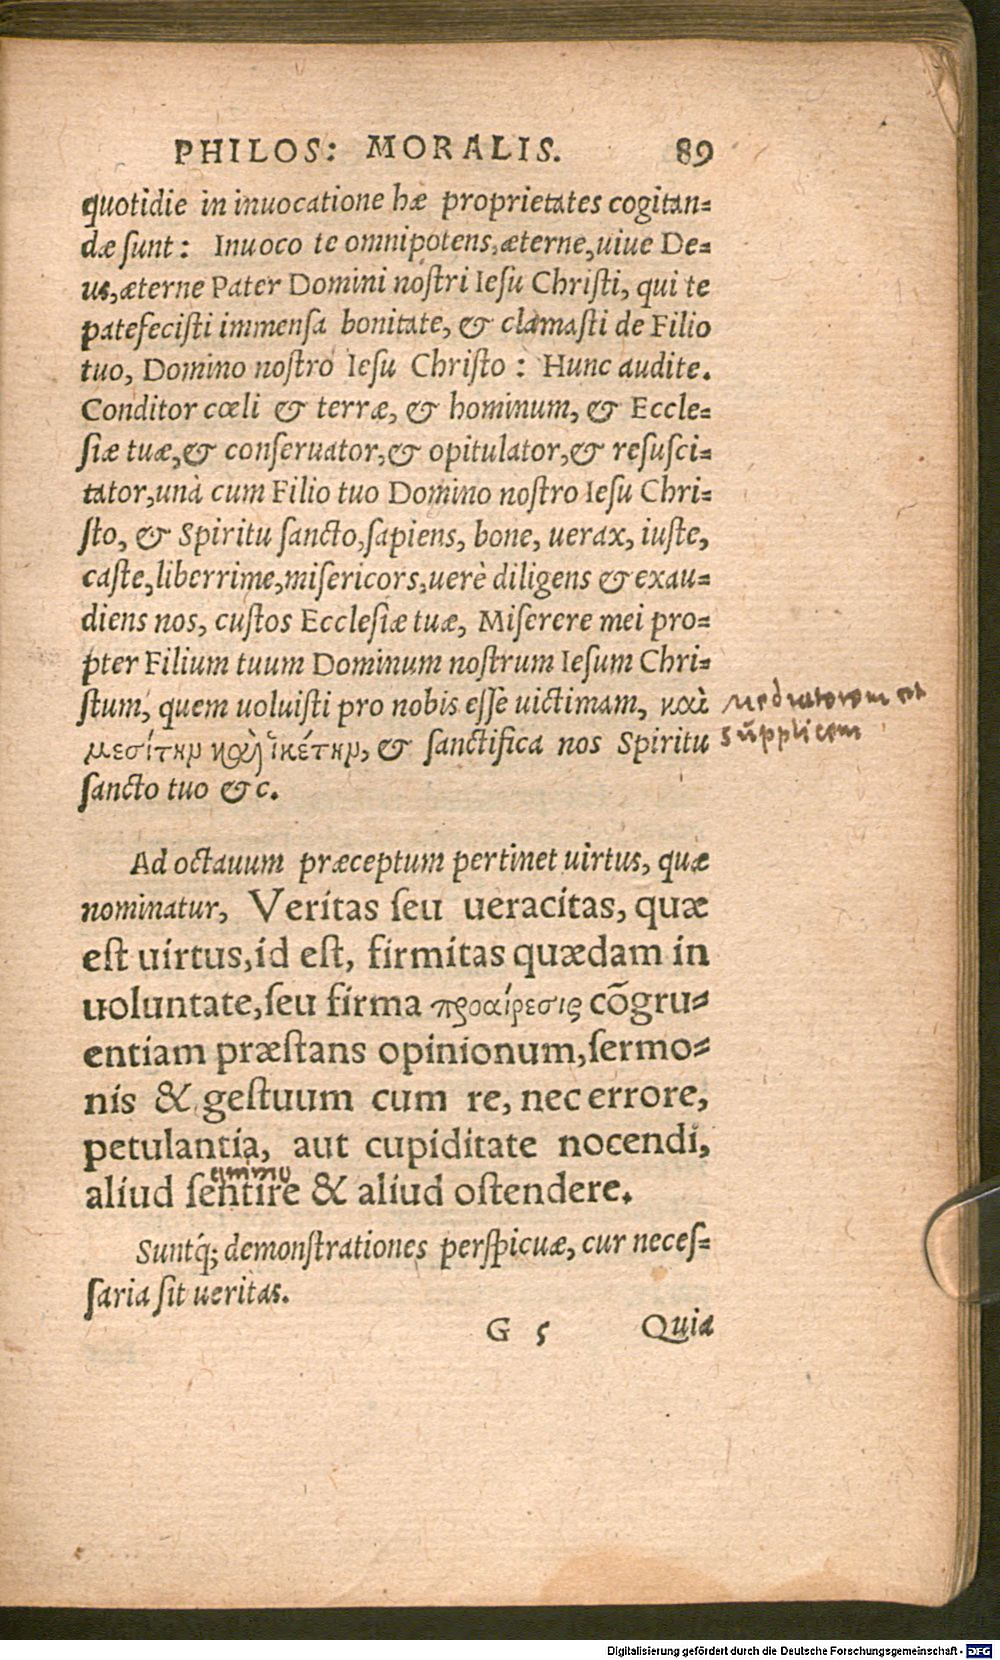 PHILOS: MORALIS. 89
quotidie in inuocatione hæ proprietates cogitan=
dæ sunt: Inuoco te omnipotens, æterne, uiue De=
us, æterne Pater Domini nostri Iesu Christi, qui te
patefecisti immensa bonitate, & clamasti de Filio
tuo, Domino nostro Iesu Christo: Hunc audite.
Conditor cœli & terræ, & hominum, & Eccle=
siæ tuæ, & conseruator, & opitulator, & resusci=
tator, unà cum Filio tuo Domino nostro Iesu Chri=
sto, & Spiritu sancto, sapiens, bone, uerax, iuste,
caste, liberrime, misericors, uerè diligens & exau=
diens nos, custos Ecclesiæ tuæ, Miserere mei pro=
pter Filium tuum Dominum nostrum Iesum Chri=
stum, quem uoluisti pro nobis esse uictimam, καὶ
mediatorem et
μεσίτην καὶ ἱκέτην, & sanctifica nos Spiritu
supplicem
sancto tuo &c.
Ad octauum præceptum pertinet uirtus, quæ
nominatur, Veritas seu ueracitas, quæ
est uirtus, id est, firmitas quædam in
uoluntate, seu firma προαίρεσις cõgru=
entiam præstans opinionum, sermo=
nis & gestuum cum re, nec errore,
petulantia, aut cupiditate nocendi,
animo
aliud sentire & aliud ostendere.
Suntq́; demonstrationes perspicuæ, cur neces=
saria sit ueritas.
G 5 Quia
Digitalisierung gefördert durch die Deutsche Forschungsgemeinschaft - DFG